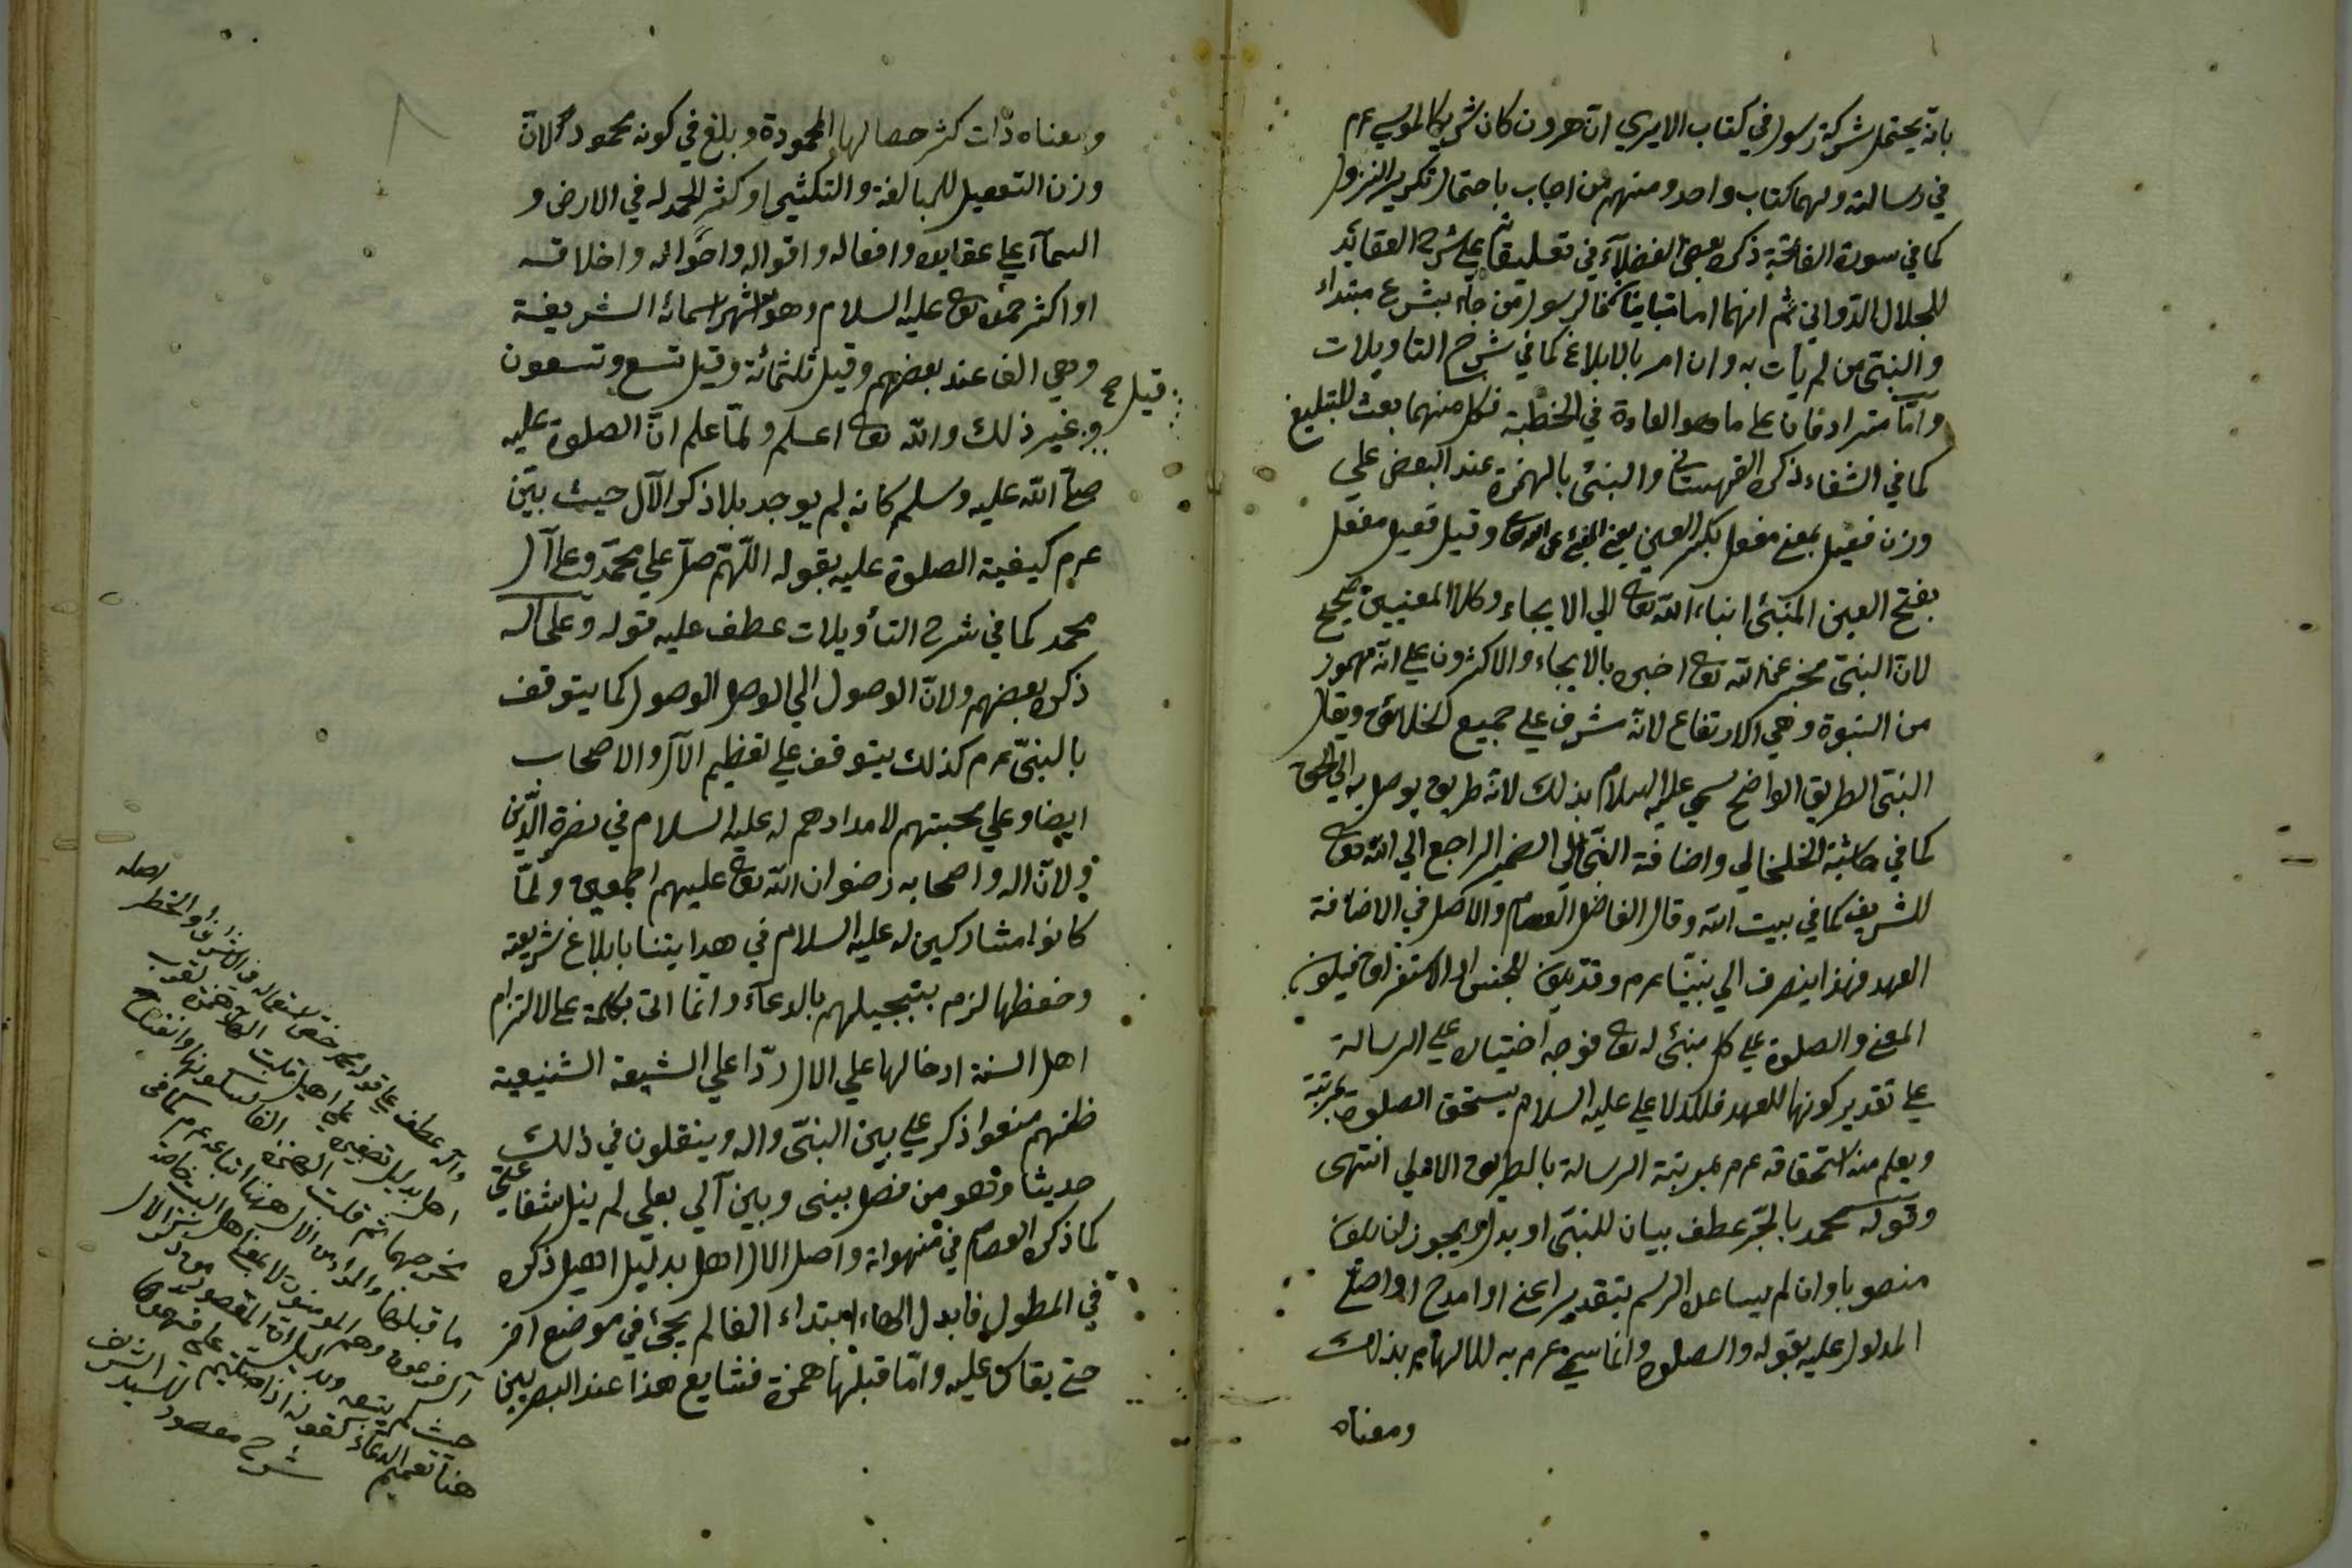 بانه يحتمل شركة رسول في كتاب الاميري ان هرون كان شريكا لموسى عم
في رسالته ولهما كتاب واحد ومنهم من اجاب باحتمال تكرير النزول
كما في سورة الفاتحة ذكره بعض الفضلاء في تعليقاته على شرح العقائد
للجلال الدواني ثم انهما اما متباينان فالرسول من جاء بشرع مبتداء
والنبي من لم يأت به وان امر بالابلاغ كما في شرح التاويلات
واما مترادفان على ما هو العادة في الخطبة فكل منهما بعث للتبليغ
كما في الشفاء ذكره القهستاني والنبئ بالهمزة عند البعض على
وزن فعيل بمعنى مفعل بكسر العين يعني المنبئ عن الله تعالى وقيل فعيل مفعل
بفتح العين المنبئ انباء الله تعالى الي الايحاء وكلا المعنيين صحيح
لان النبي مخبر عن الله تعالى اخبره بالايحاء والاكثرون على انه مهموز
من النبوة وهي الارتفاع لانه شرف على جميع الخلائق ويقال
النبي الطريق الواضح سمي عليه السلام بذلك لانه طريق يوصل به الى الحق
كما في حاشية الخلخالي واضافة النبي الى الضمير الراجع الي الله تعالى
للتشريف كما في بيت الله وقال الفاضل العصام والاصل في الاضافة
العهد فهذا ينصرف الي نبينا عم وقد يكون للجنس او الاستغراق فيكون
المعنى والصلوة على كل منبئ له تعالى فوجه اختياره على الرسالة
على تقدير كونها للعهد فللدلالة على عليه السلام يستحق الصلوة بمرتبة
ويعلم منه استحقاقه عم بمرتبة الرسالة بالطريق الاولى انتهى
وقوله محمد بالجر عطف بيان للنبي او بدل ويجوز ان يكون
منصوبا وان لم يساعده الرسم بتقدير اعني او امدح او اصلي
المدلول عليه بقوله والصلوة وانما سمي عم به للالهام بذلك
ومعناه
ومعناه ذات كثر خصالها المحمودة وبلغ في كونه محمودا لان
وزن التفعيل للمبالغة والتكثير او كثر الحمد له في الارض و
السماء على عقايده وافعاله واقواله واحواله واخلاقه
او اكثر حمده تعالى عليه السلام وهو اشهر اسمائه الشريفة
وهي الف عند بعضهم وقيل ثلثمائة وقيل تسع وتسعون
قيل صح
وغير ذلك والله تعالى اعلم ولما علم ان الصلوة عليه
صلى الله عليه وسلم كانه لم يوجد بلا ذكر الآل حيث بين
عم كيفية الصلوة عليه بقوله اللهم صل على محمد وعلى آل
محمد كما في شرح التأويلات عطف عليه قوله وعلى آله
ذكره بعضهم ولان الوصول الي الوصل الوصول كما يتوقف
بالنبي عم كذلك يتوقف على تعظيم الآل والاصحاب
ايضا وعلى محبتهم لامدادهم له عليه السلام في نصرة الدين
ولان اله واصحابه رضوان الله تعالى عليهم اجمعين ولما
كانوا مشاركين له عليه السلام في هدايتنا بابلاغ شريعته
وحفظها لزم تبجيلهم بالدعاء وانما اتى بكلمة على لالتزام
اهل السنة ادخالها على الال ردا على الشيعة الشنيعة
فانهم منعوا ذكر على بين النبي واله وينقلون في ذلك
حديثا وهو من فصل بيني وبين آلي بعلى لم ينل شفاعتي
كما ذكره العصام في منهواته واصل الال اهل بدليل اهيل ذكره
في المطول فابدل الهاء ابتداء الفا لم يجئ في موضع آخر
حتى يقاس عليه واما قلبها همزة فشايع هذا عند البصريين
وآله عطف على قوله محمد خص استعماله في الاشراف واولي الخطر اصله
اهل بدليل تصغيره على اهيل قلبت الهاء همزة لقرب
مخرجهما ثم قلبت الهمزة الفا لسكونها وانفتاح
ما قبلها والمراد من الآل ههنا اتباعه عم كما في
آل فرعون وهم المؤمنون لا بمعنى اهل البيت خاصة
حيث لم يتبعه
هنا تعميم الدعاء كقوله اذا صليتم على فعمموا
شرح مقصود للسيد الشريف